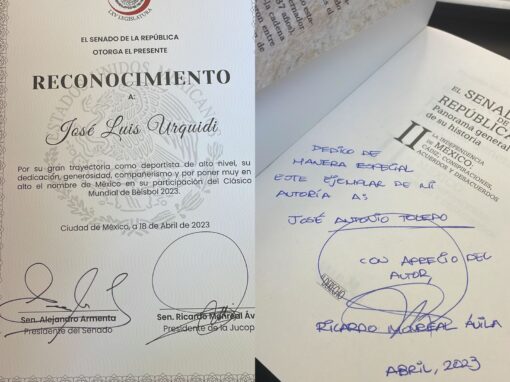 LXV LEGISLATURA
EL SENADO DE LA REPÚBLICA
OTORGA EL PRESENTE
RECONOCIMIENTO
A:
José Luis Urquidi
Por su gran trayectoria como deportista de alto nivel, su
dedicación, generosidad, compañerismo y por poner muy en
alto el nombre de México en su participación del Clásico
Mundial de Béisbol 2023.
Ciudad de México, a 18 de Abril de 2023
Sen. Alejandro Armenta
Presidente del Senado
Sen. Ricardo Monreal Áv
Presidente de la Jucop
ESTADOS UNIDOS MEXICANOS
EL SENADO
DE LA
REPÚBLICA
Panorama general
de su historia
II
LA INDEPENDENCIA
DE MÉXICO.
CÁDIZ, CONSPIRACIONES,
ACUERDOS Y DESACUERDOS
DEDICO DE
MANERA ESPECIAL
ESTE EJEMPLAR DE MI
AUTORÍA A:
JOSÉ ANTONIO TOLEDO
CON APRECIO DEL
AUTOR,
RICARDO MONREAL ÁVILA
ABRIL, 2023